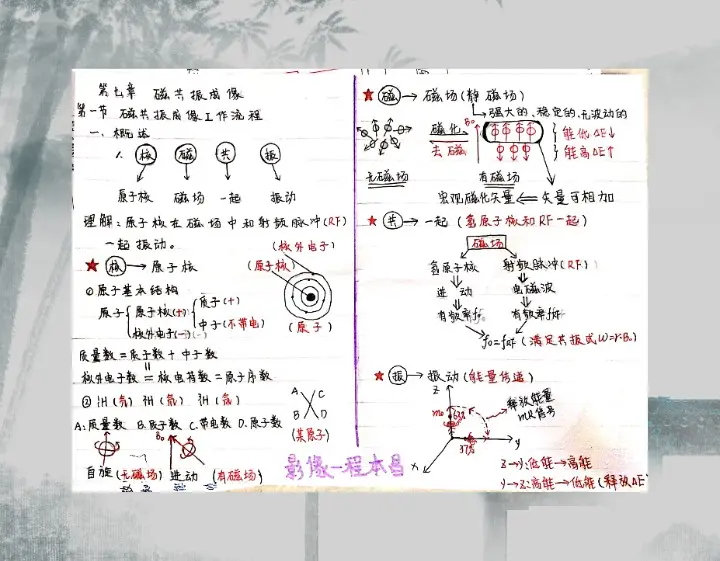 第七章 磁共振成像
第一节 磁共振成像工作流程
一、概述
1. 核 磁 共 振
原子核 磁场 一起 振动
理解:原子核在磁场中和射频脉冲(RF)
一起振动。
(核外电子)
★ 核 → 原子核
(原子核)
①原子基本结构
原子 原子核(+) 质子(+)
中子(不带电)
核外电子(-)
(原子)
质量数=质子数+中子数
核外电子数=核电荷数=原子序数
A C
B D
(某原子)
A:质量数 B.质子数 C.带电数 D.原子数
B₀
自旋(无磁场) 进动 (有磁场)
影像—程本昌
★ 磁 → 磁场(静磁场)
→强大的、稳定的、无波动的
磁化
去磁
B₀
能低ΔE↓
能高ΔE↑
无磁场 有磁场
宏观磁化矢量 ⇐ 矢量可相加
★ 共 → 一起(氢原子核和RF一起)
磁场
氢原子核 射频脉冲(RF)
进动 电磁波
有频率f₀ 有频率fRF
f₀=fRF(满足共振式,ω=γ·B₀)
★ 振 → 振动(能量传递)
Z
m₀
释放能量
MR信号
y
x
z→y:低能→高能
y→z:高能→低能(释放ΔE)